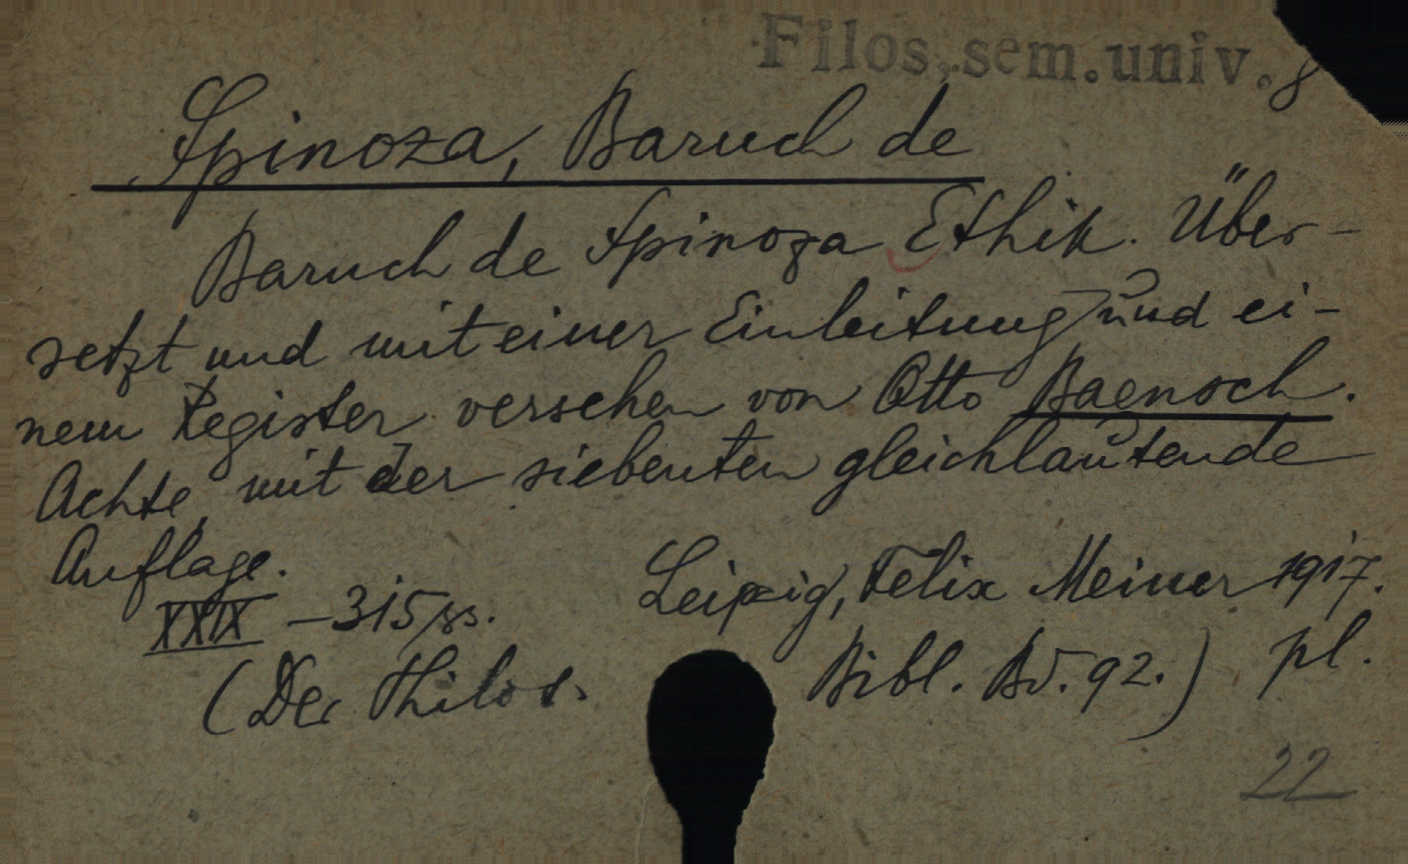 Filos. sem. univ. 8
Spinoza, Baruch de
Baruch de Spinoza Ethik. Über-
setzt und mit einer Einleitung und ei-
nem Register versehen von Otto Baensch.
Achte, mit der siebenten gleichlautende
Auflage.
Leipzig, Felix Meiner 1917.
XXIX – 315 ss.
(Der Philos. Bibl. Bd. 92.) pl.
22